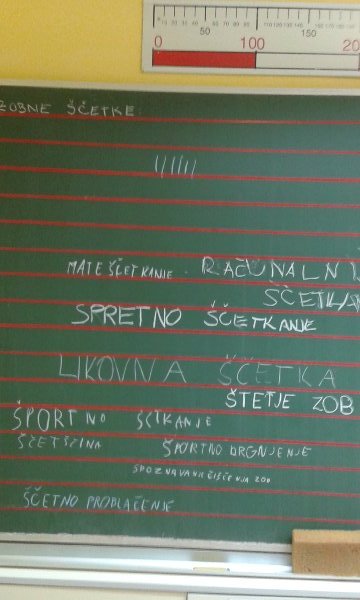 0 50 100 150
ZOBNE ŠČETKE
MATE ŠČETKANJE
RAČUNALNI
ŠČETKA
SPRETNO ŠČETKANJE
LIKOVNA ŠČETKA
ŠTETJE ZOB
ŠPORTNO ŠČTKANJE
ŠČETŠČINA ŠPORTNO DRGNJENJE
ŠČETNO PROBLAČENJE